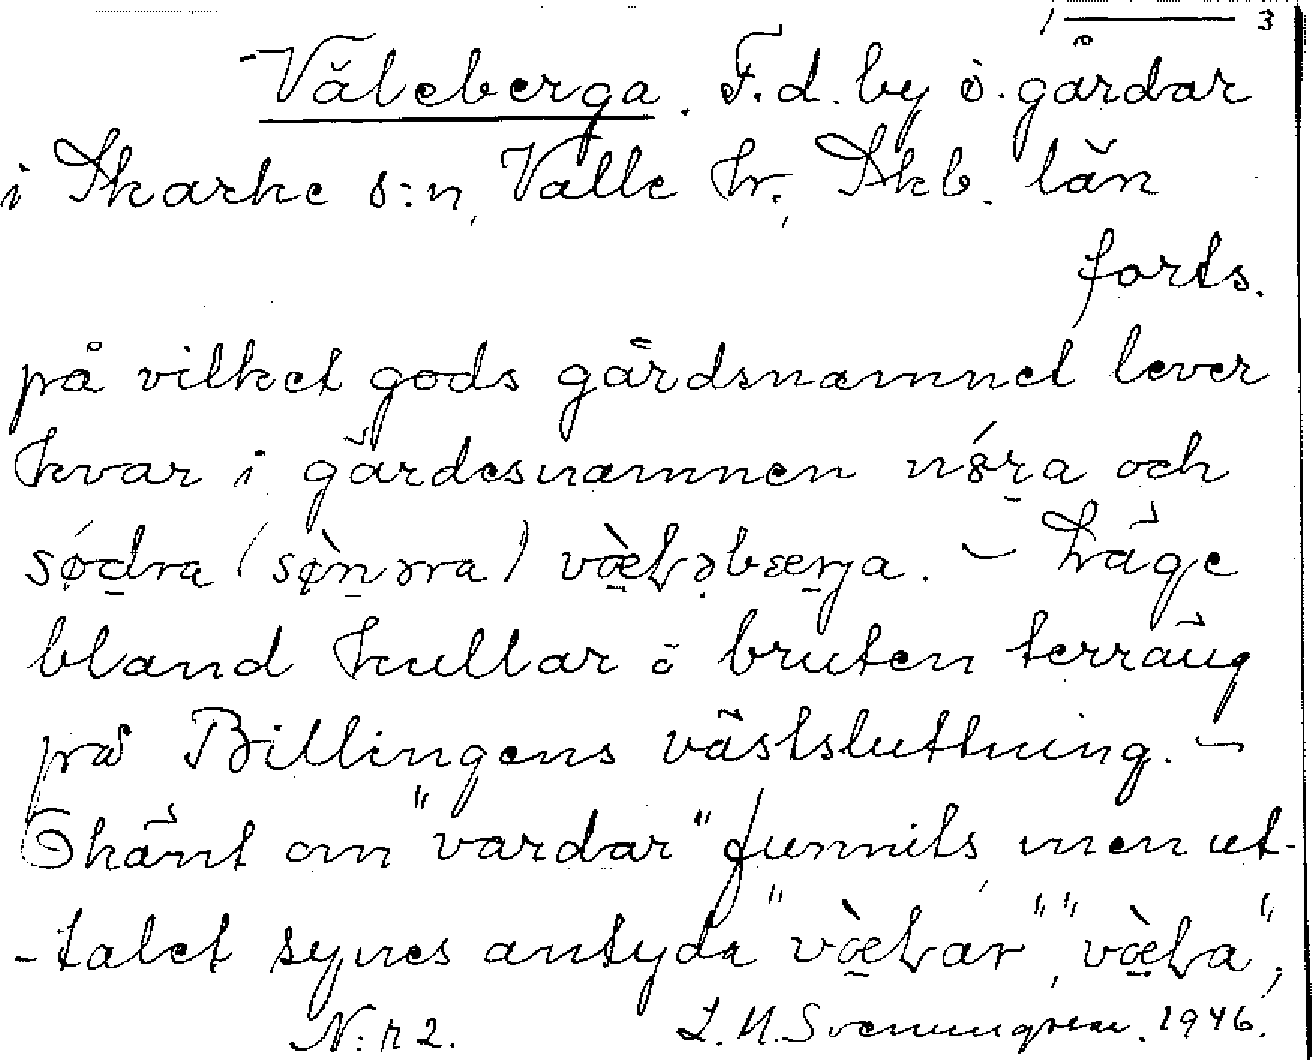 3
Väleberga. F.d. by ö. gårdar
i Skarke s:n, Valle hr., Skb. län
forts.
på vilket gods gårdsnamnet lever
kvar i gärdesnamnen nö́ra och
södra (sønəra) væ̀ɽəbærja. – Läge
bland kullar ö bruten terräng
på Billingens västsluttning. –
Okänt om "vardar" funnits, men ut-
-talet synes antyda "væ̀ɽar", "væ̀ɽa",
N:r 2. 1946.